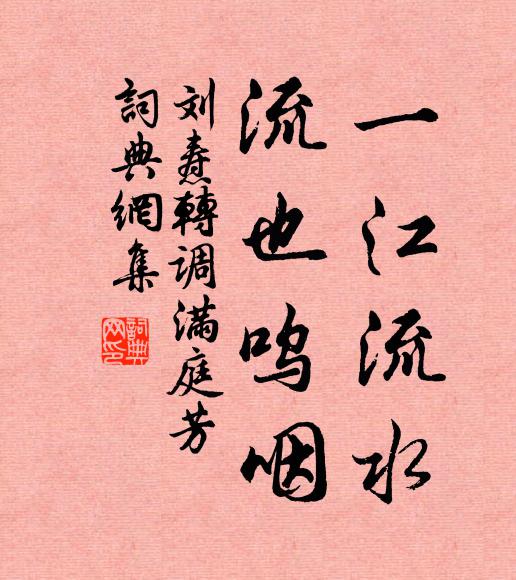 一江流水
流也呜咽
刘焘轉调满庭芳
詞典網集
詞典
网印